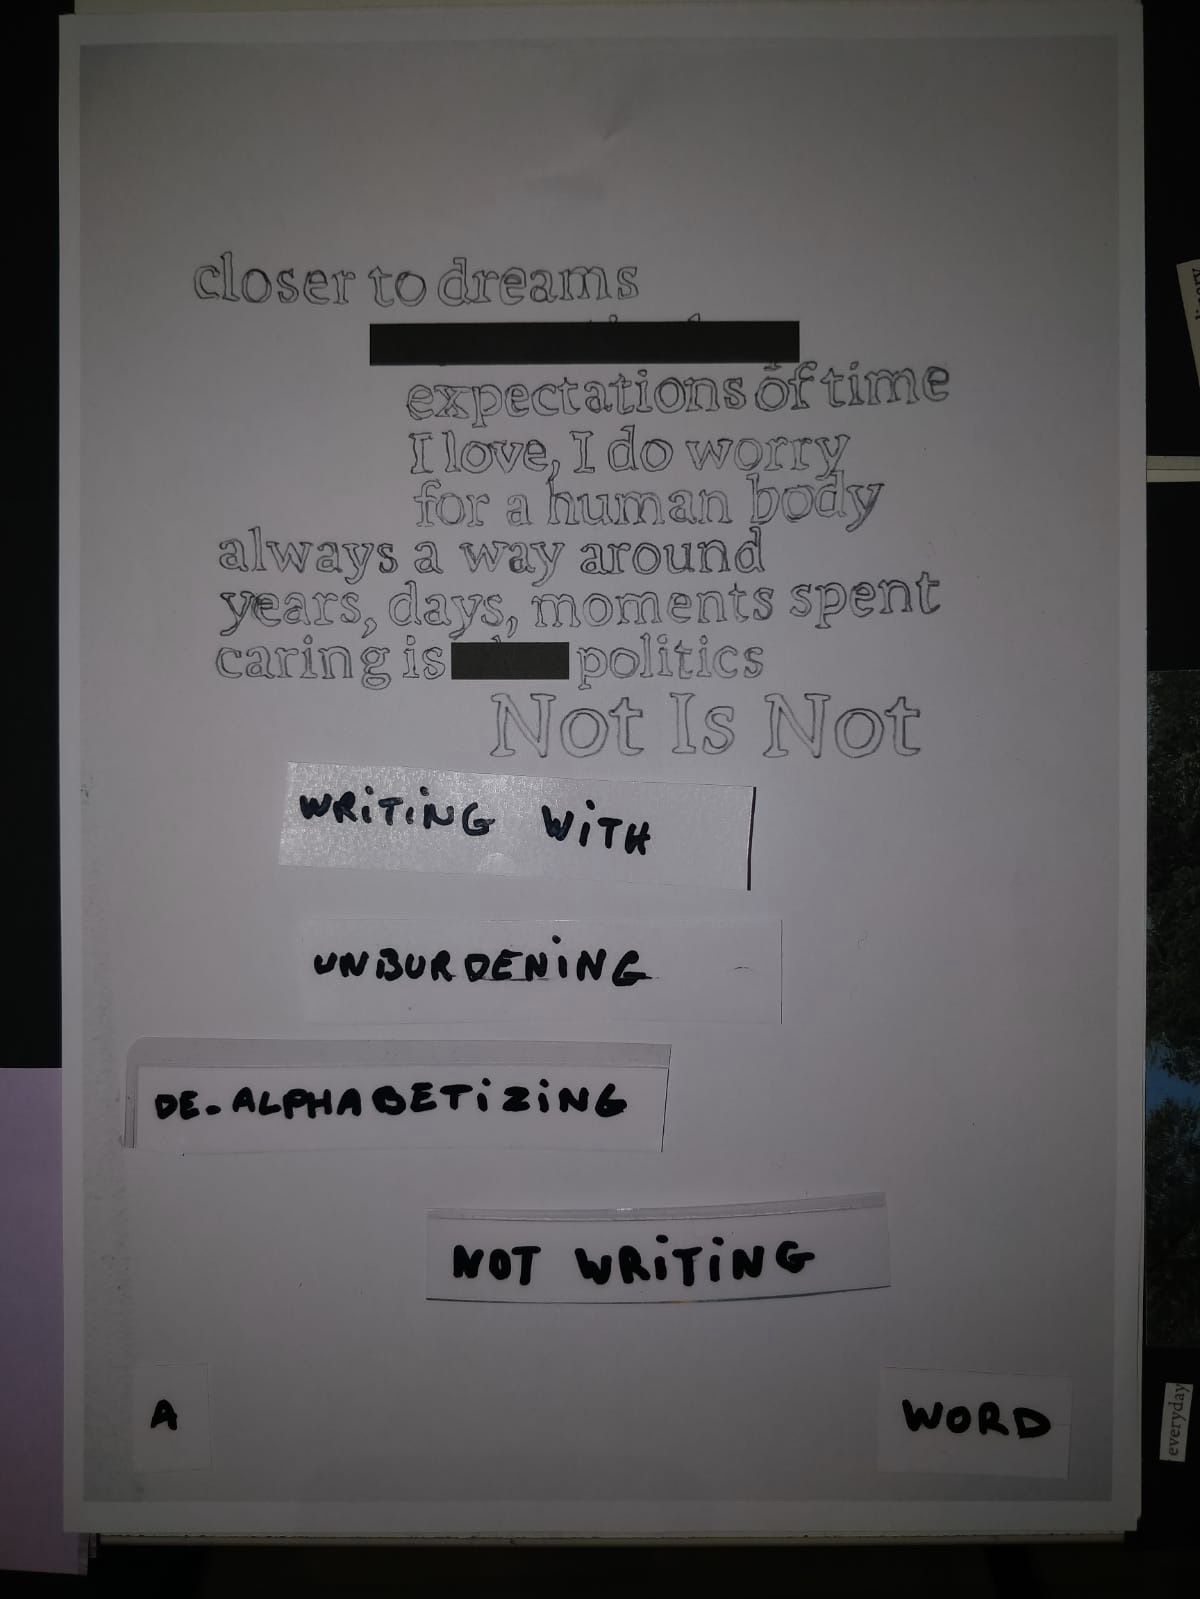 closer to dreams
expectations of time
I love, I do worry
for a human body
always a way around
years, days, moments spent
caring is politics
Not Is Not
WRiTiNG WiTH
UNBURDENiNG
DE-ALPHABETiZiNG
NOT WRiTiNG
A WORD
everyday